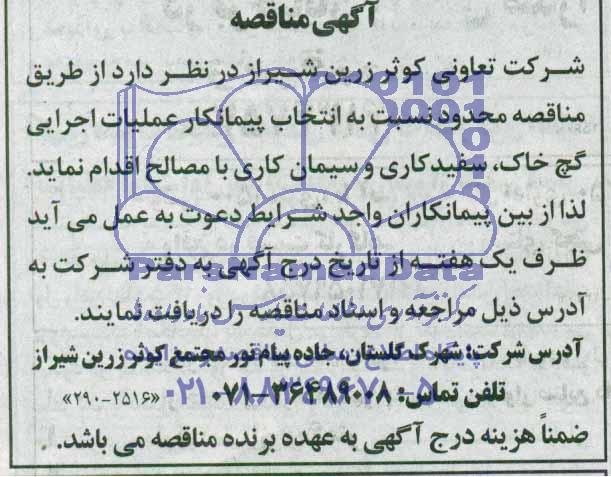 آگهی مناقصه
شرکت تعاونی کوثر زرین شیراز در نظر دارد از طریق
مناقصه محدود نسبت به انتخاب پیمانکار عملیات اجرایی
گچ خاک، سفیدکاری و سیمان کاری با مصالح اقدام نماید.
لذا از بین پیمانکاران واجد شرایط دعوت به عمل می آید
ظرف یک هفته از تاریخ درج آگهی به دفتر شرکت به
آدرس ذیل مراجعه و اسناد مناقصه را دریافت نمایند.
آدرس شرکت: شهرک گلستان، جاده پیام نور مجتمع کوثر زرین شیراز
تلفن تماس: ۳۶۴۸۹۰۰۸-۰۷۱ «۲۵۱۶-۲۹۰»
ضمناً هزینه درج آگهی به عهده برنده مناقصه می باشد.
ParsNamadData